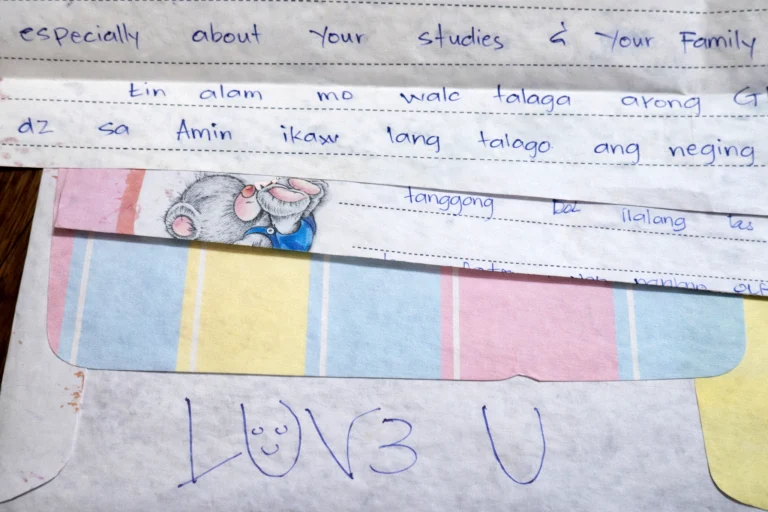 especially about Your studies & Your Family
tin alam mo wala talaga arong
dz sa Amin ikaw lang talaga ang neging
tanggong ilalang
LUV3 U